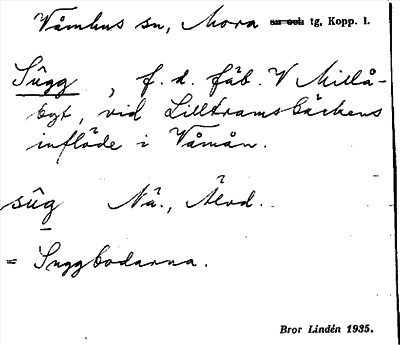 Våmhus sn, Mora sn och tg, Kopp. l.
Sûgg, f. d. fäb. V Millå-
bgt, vid Lilltramsbäckens
inflöde i Våmån.
sûg Nä., Älvd.
= Suggbodarna.
Bror Lindén 1935.